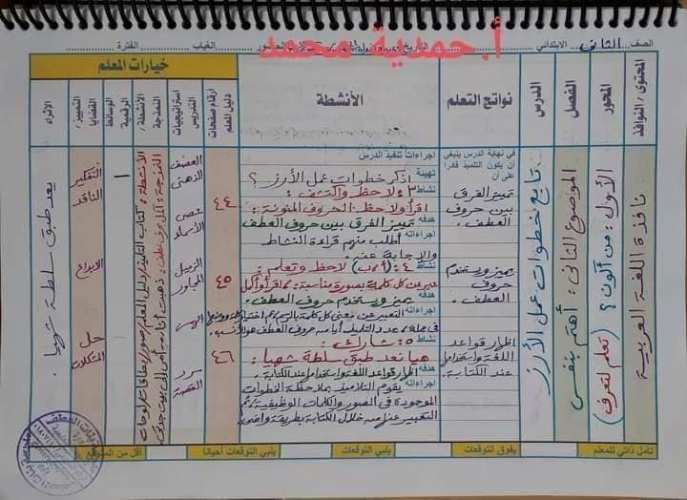 أ.حمدية محمد
الصف الثاني الابتدائي
الغياب
الفترة
المحتوى / النوافذ
المحور
الفصل
الدرس
نواتج التعلم
الأنشطة
خيارات المعلم
أرقام صفحات دليل المعلم
استراتيجيات التدريس
الأنشطة/ النمذجة
الوسائط الرقمية
القضايا
التمييز/
الإثراء
نافذة اللغة العربية
الأول: من أكون؟ (تعلم لتعرف)
الموضوع الثاني: أهتم بنفسي
تابع خطوات عمل الأرز
في نهاية الدرس ينبغي
أن يكون التلميذ قادرا
على أن
تمييز الفرق
بين حروف
العطف.
يميز ويستخدم
حروف
العطف.
إظهار قواعد
اللغة واستخدامها
عند الكتابة.
إجراءات تنفيذ الدرس
تهيئة اذكر خطوات عمل الأرز؟
نشاط ٣: لاحظ واكتشف:
اقرأ ولاحظ الحروف الملونة:
هدفه تمييز الفرق بين حروف العطف
إجراءاته أطلب منهم قراءة النشاط
والإجابة عنه.
نشاط ٤: (أ، ب) لاحظ وتعلم:
عبر عن كل كلمة بصورة مناسبة: اقرأ وأكمل
هدفه يميز ويستخدم حروف العطف.
إجراءاته التعبير عن معنى كل كلمة بالرسم
نشاط ٥: شارك:
هيا نعد طبق سلطة شهيا:
هدفه إظهار قواعد اللغة واستخدامها عند الكتابة:
إجراءاته يقوم التلاميذ بملاحظة الخطوات
الموجودة في الصور والكلمات الوظيفية، ثم
التعبير عنها من خلال الكتابة بطريقة واضحة
٤٤
٤٥
٤٦
العصف
الذهني
عصى
الأسماء
الزميل
المجاور
الهمس
سرد
القصة
التفكير
الناقد
الإبداع
حل
المشكلات
يعد طبق سلطة شهيا.
تأمل ذاتي للمعلم
يفوق التوقعات
يلبي التوقعات
يلبي التوقعات أحيانا
أقل من المتوقع